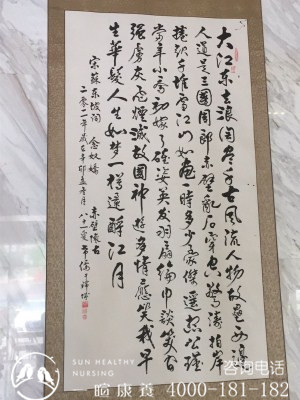 大江东去浪淘尽千古风流人物故垒西边
人道是三國周郎赤壁乱石穿空驚涛拍岸
捲起千堆雪江山如画一时多少豪傑遥想公瑾
當年小乔初嫁了雄姿英发羽扇纶巾谈笑间
强虏灰飞烟灭故國神遊多情應笑我早
生華髮人生如梦一樽還酹江月
宋蘇东坡词 念奴嬌 赤壁懷古
二零一一年歲在辛卯 月 八十一叟
SUN HEALTHY
NURSING
暄康养
咨询电话
4000-181-182